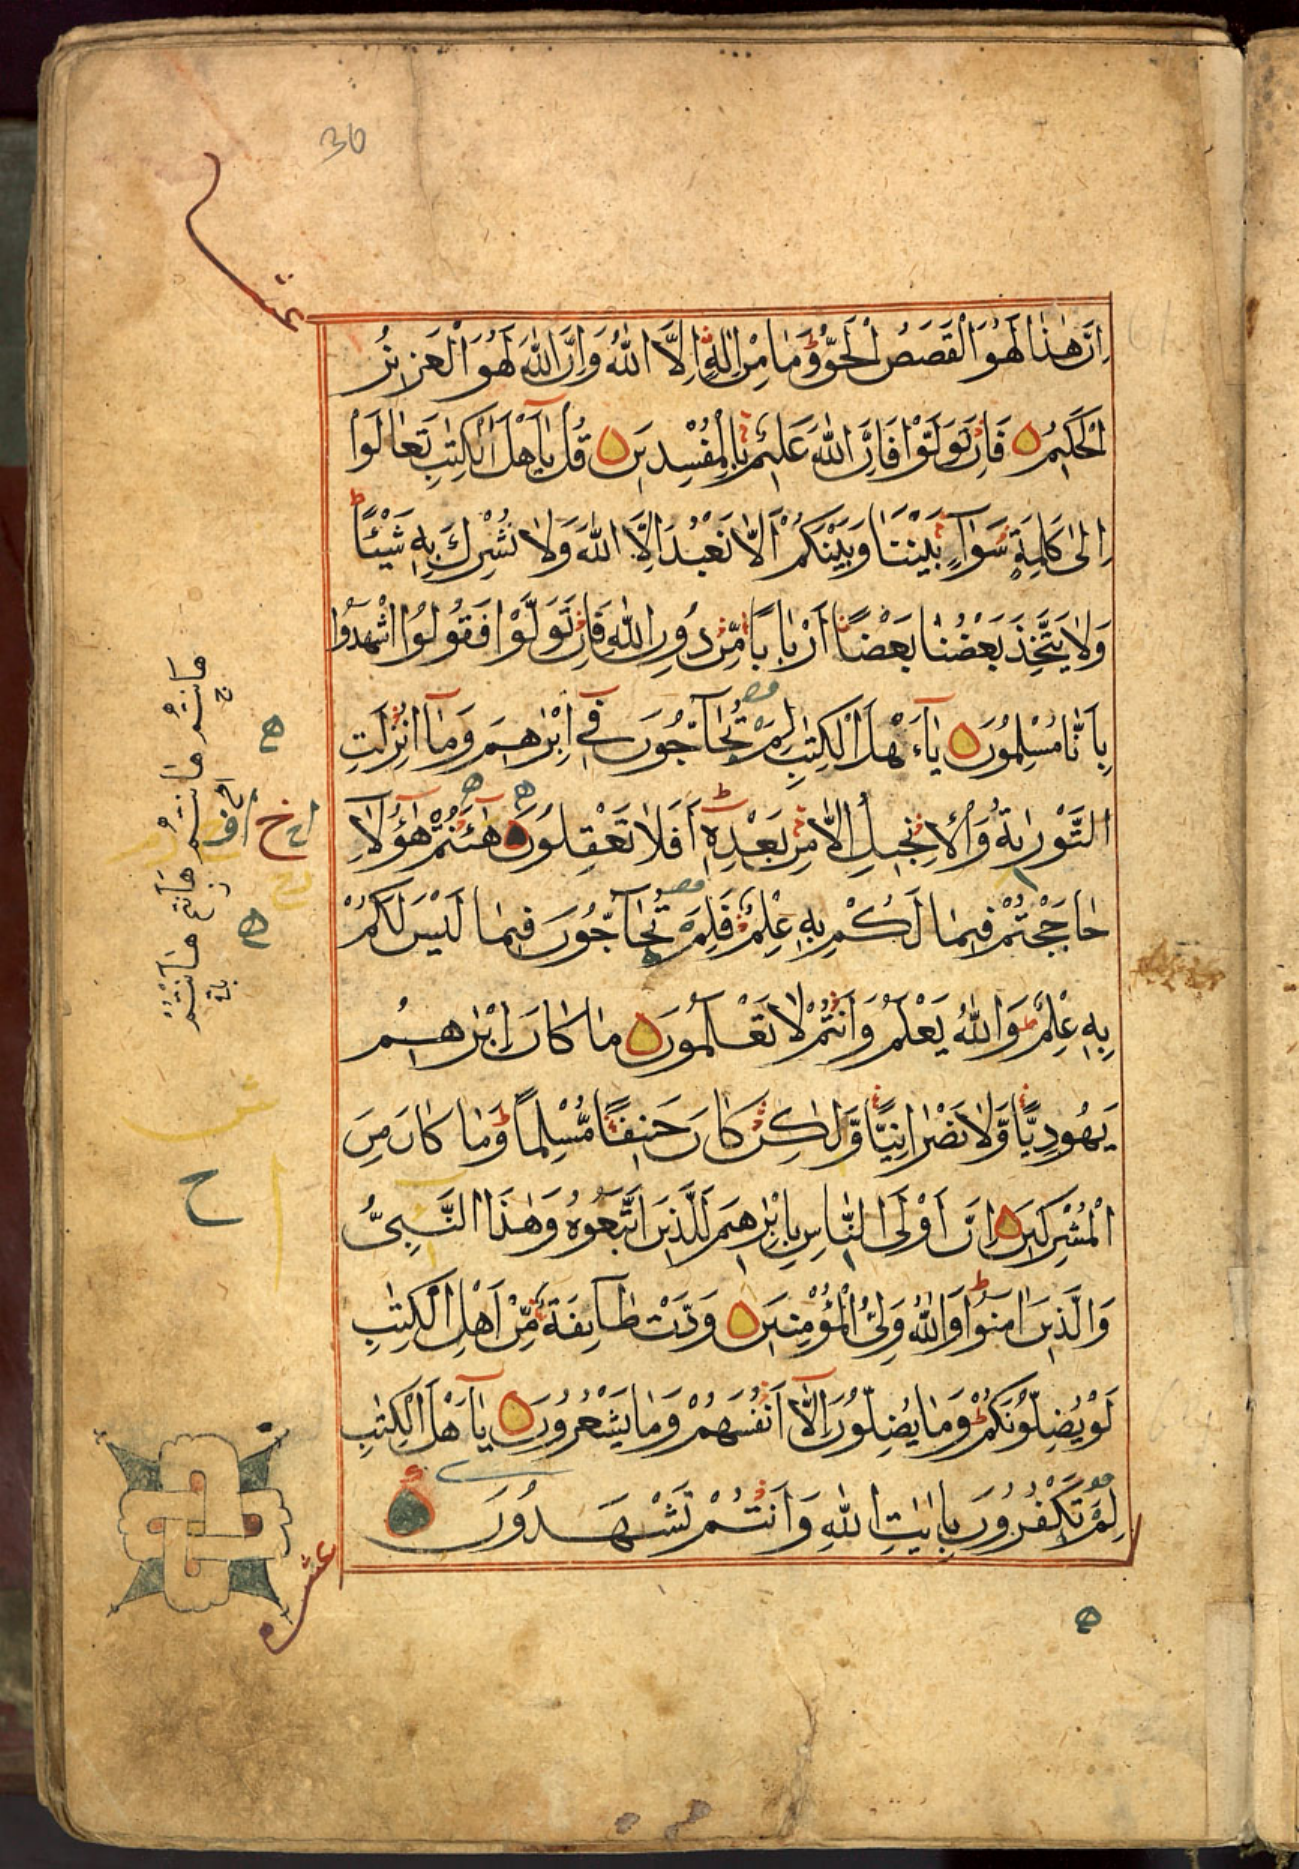 30
عشر
اِنَّ هٰذَا لَهُوَ الْقَصَصُ الْحَقُّ وَمَا مِنْ اِلٰهٍ اِلَّا اللّٰهُ وَاِنَّ اللّٰهَ لَهُوَ الْعَزِيزُ
الْحَكِيمُ فَاِنْ تَوَلَّوْا فَاِنَّ اللّٰهَ عَلِيمٌ بِالْمُفْسِدِينَ قُلْ يَاۤ اَهْلَ الْكِتٰبِ تَعَالَوْا
اِلٰى كَلِمَةٍ سَوَاۤءٍ بَيْنَنَا وَبَيْنَكُمْ اَلَّا نَعْبُدَ اِلَّا اللّٰهَ وَلَا نُشْرِكَ بِهِ شَيْئًا
وَلَا يَتَّخِذَ بَعْضُنَا بَعْضًا اَرْبَابًا مِّنْ دُونِ اللّٰهِ فَاِنْ تَوَلَّوْا فَقُولُوا اشْهَدُوا
بِاَنَّا مُسْلِمُونَ يَاۤءَهْلَ الْكِتٰبِ لِمَ تُحَاۤجُّونَ فِيۤ اِبْرٰهِيمَ وَمَاۤ اُنْزِلَتِ
التَّوْرٰىةُ وَالْاِنْجِيلُ اِلَّا مِنْ بَعْدِهِ اَفَلَا تَعْقِلُونَ هٰۤاَنْتُمْ هٰۤؤُلَاۤءِ
حَاجَجْتُمْ فِيمَا لَكُمْ بِهِ عِلْمٌ فَلِمَ تُحَاۤجُّونَ فِيمَا لَيْسَ لَكُمْ
بِهِ عِلْمٌ وَاللّٰهُ يَعْلَمُ وَاَنْتُمْ لَا تَعْلَمُونَ مَا كَانَ اِبْرٰهِيمُ
يَهُودِيًّا وَّلَا نَصْرَانِيًّا وَّلٰكِنْ كَانَ حَنِيفًا مُّسْلِمًا وَمَا كَانَ مِنَ
الْمُشْرِكِينَ اِنَّ اَوْلَى النَّاسِ بِاِبْرٰهِيمَ لَلَّذِينَ اتَّبَعُوهُ وَهٰذَا النَّبِيُّ
وَالَّذِينَ اٰمَنُوا وَاللّٰهُ وَلِيُّ الْمُؤْمِنِينَ وَدَّتْ طَاۤئِفَةٌ مِّنْ اَهْلِ الْكِتٰبِ
لَوْ يُضِلُّونَكُمْ وَمَا يُضِلُّونَ اِلَّاۤ اَنْفُسَهُمْ وَمَا يَشْعُرُونَ يَاۤ اَهْلَ الْكِتٰبِ
لِمَ تَكْفُرُونَ بِاٰيٰتِ اللّٰهِ وَاَنْتُمْ تَشْهَدُونَ
عشر